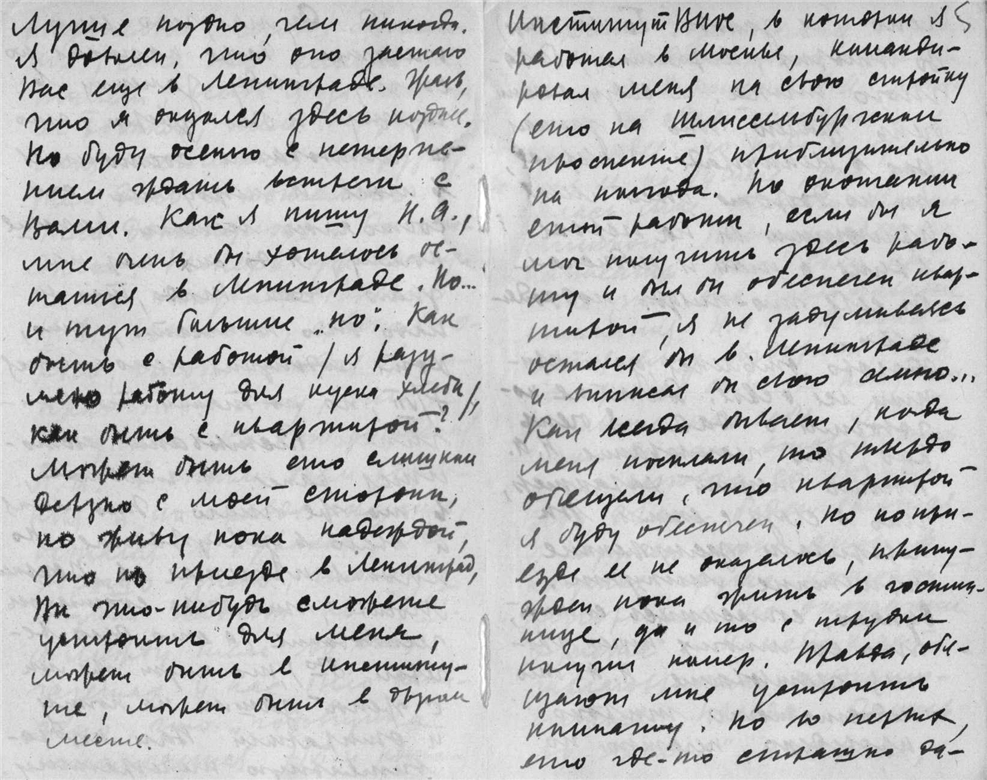 Лучше поздно, чем никогда.
Я доволен, что оно застало
Вас еще в Ленинграде. Жаль,
что я очутился здесь позднее.
Но буду осенью с нетерпе-
нием ждать встречи с
Вами. Как я пишу Н.Я.,
мне очень бы хотелось ос-
таться в Ленинграде. Но...
и тут большие „но". Как
быть с работой / я разу-
мею работу для куска хлеба/,
как быть с квартирой?
Может быть это слишком
дерзко с моей стороны,
но живу пока надеждой,
что по приезде в Ленинград,
Вы что-нибудь сможете
устроить для меня,
может быть в институ-
те, может быть в другом
месте.
Институт ВНОС, в котором я
работал в Москве, команди-
ровал меня на свою стройку
(это на Шлиссельбургском
проспекте) приблизительно
на полгода. По окончании
этой работы, если бы я
мог получить здесь рабо-
ту и был бы обеспечен квар-
тирой, я не задумываясь
остался бы в Ленинграде
и выписал бы свою семью...
Как всегда бывает, когда
меня посылали, то твердо
обещали, что квартирой
я буду обеспечен, но по при-
езде ее не оказалось, прину-
жден пока жить в гостин-
нице, да и то с трудом
получил номер. Правда, обе-
щают мне устроить
комнату. Но во первых,
это где-то страшно да-